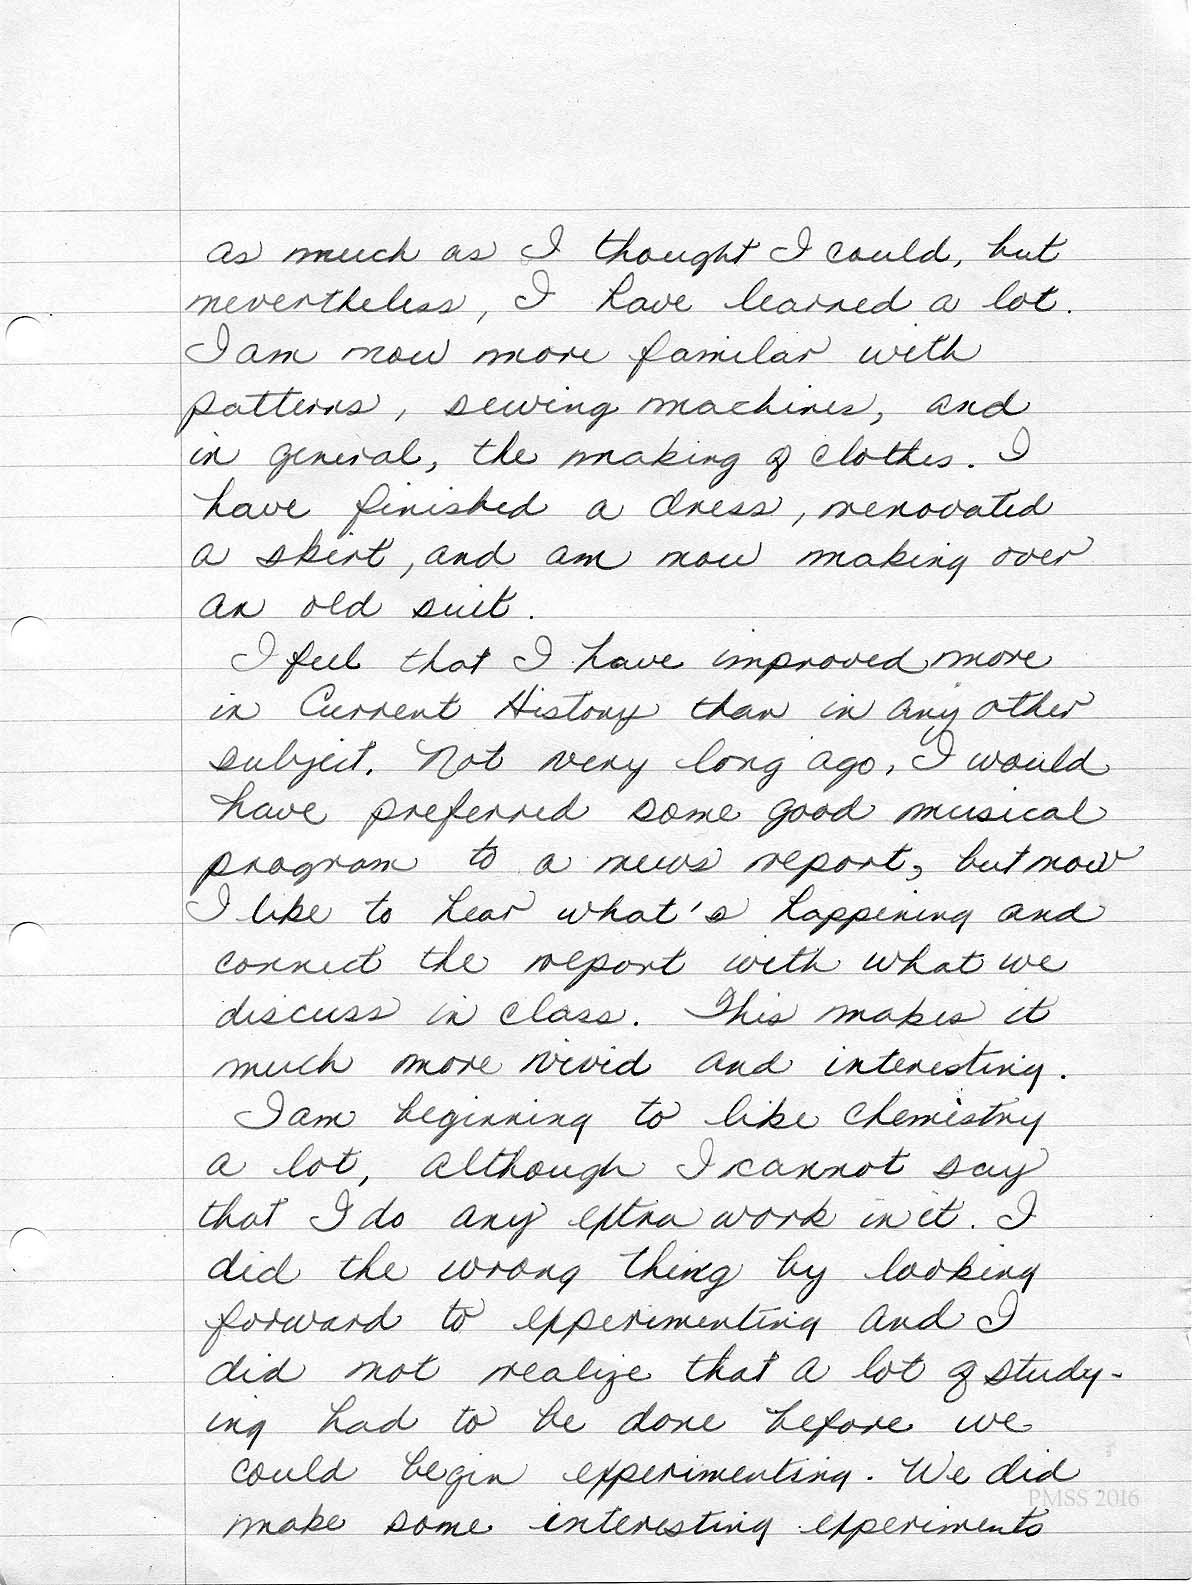 as much as I thought I could, but
nevertheless, I have learned a lot.
I am now more familar with
patterns, sewing machines, and
in general, the making of clothes. I
have finished a dress, renovated
a skirt, and am now making over
an old suit.
I feel that I have improved more
in Current History than in any other
subject. Not very long ago, I would
have preferred some good musical
program to a news report, but now
I like to hear what's happening and
connect the report with what we
discuss in class. This makes it
much more vivid and interesting.
I am beginning to like Chemistry
a lot, although I cannot say
that I do any extra work in it. I
did the wrong thing by looking
forward to experimenting and I
did not realize that a lot of study-
ing had to be done before we
could begin experimenting. We did
PMSS 2016
make some interesting experiments